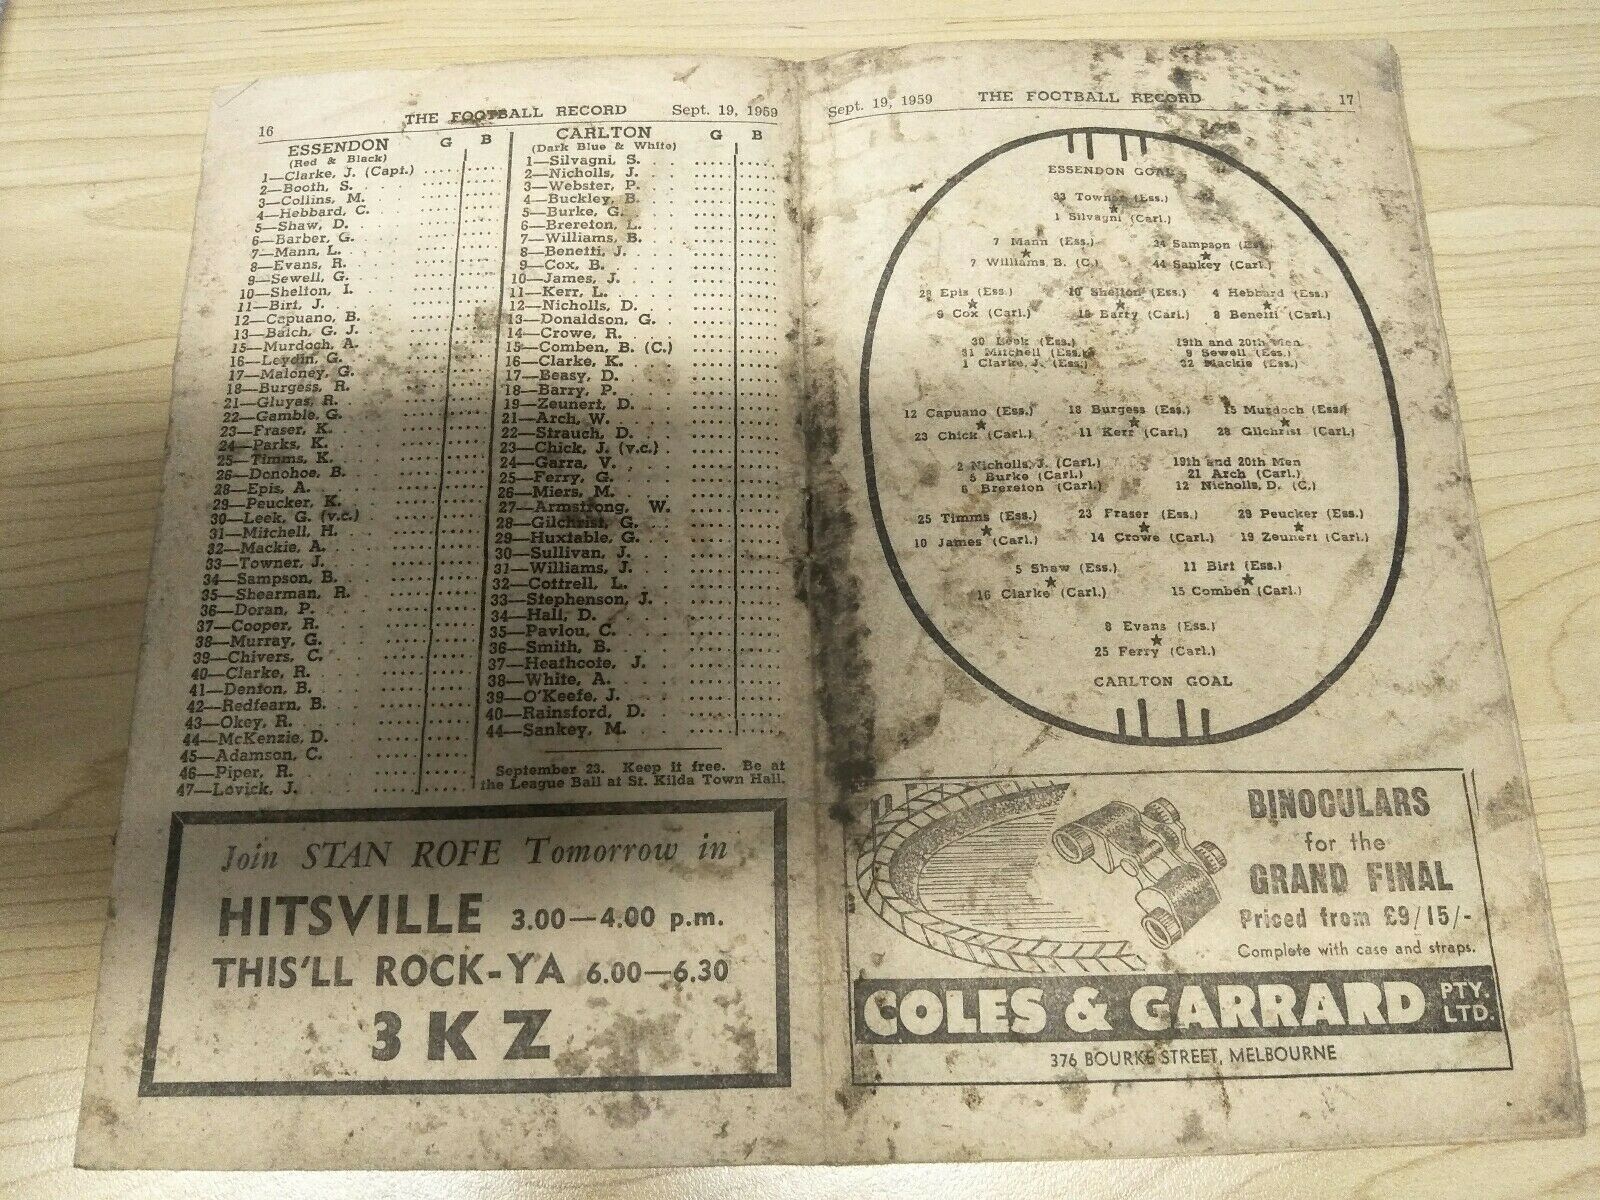 16 THE FOOTBALL RECORD Sept. 19, 1959
ESSENDON G B
(Red & Black)
1—Clarke, J. (Capt.)
2—Booth, S.
3—Collins, M.
4—Hebbard, C.
5—Shaw, D.
6—Barber, G.
7—Mann, L.
8—Evans, R.
9—Sewell, G.
10—Shelton, I.
11—Birt, J.
12—Capuano, B.
13—Balch, G. J.
15—Murdoch, A.
16—Leydin, G.
17—Maloney, G.
18—Burgess, R.
21—Gluyas, R.
22—Gamble, G.
23—Fraser, K.
24—Parks, K.
25—Timms, K.
26—Donohoe, B.
28—Epis, A.
29—Peucker, K.
30—Leek, G. (v.c.)
31—Mitchell, H.
32—Mackie, A.
33—Towner, J.
34—Sampson, B.
35—Shearman, R.
36—Doran, P.
37—Cooper, R.
38—Murray, G.
39—Chivers, C.
40—Clarke, R.
41—Denton, B.
42—Redfearn, B.
43—Okey, R.
44—McKenzie, D.
45—Adamson, C.
46—Piper, R.
47—Lovick, J.
CARLTON G B
(Dark Blue & White)
1—Silvagni, S.
2—Nicholls, J.
3—Webster, P.
4—Buckley, B.
5—Burke, G.
6—Brereton, L.
7—Williams, B.
8—Benetti, J.
9—Cox, B.
10—James, J.
11—Kerr, L.
12—Nicholls, D.
13—Donaldson, G.
14—Crowe, R.
15—Comben, B. (C.)
16—Clarke, K.
17—Beasy, D.
18—Barry, P.
19—Zeunert, D.
21—Arch, W.
22—Strauch, D.
23—Chick, J. (v.c.)
24—Garra, V.
25—Ferry, G.
26—Miers, M.
27—Armstrong, W.
28—Gilchrist, G.
29—Huxtable, G.
30—Sullivan, J.
31—Williams, J.
32—Cottrell, L.
33—Stephenson, J.
34—Hall, D.
35—Pavlou, C.
36—Smith, B.
37—Heathcote, J.
38—White, A.
39—O'Keefe, J.
40—Rainsford, D.
44—Sankey, M.
September 23. Keep it free. Be at
the League Ball at St. Kilda Town Hall.
Join STAN ROFE Tomorrow in
HITSVILLE 3.00—4.00 p.m.
THIS'LL ROCK-YA 6.00—6.30
3KZ
Sept. 19, 1959 THE FOOTBALL RECORD 17
ESSENDON GOAL
33 Towner (Ess.)
1 Silvagni (Carl.)
7 Mann (Ess.) 34 Sampson (Ess.)
7 Williams, B. (C.) 44 Sankey (Carl.)
28 Epis (Ess.) 10 Shelton (Ess.) 4 Hebbard (Ess.)
9 Cox (Carl.) 18 Barry (Carl.) 8 Benetti (Carl.)
30 Leek (Ess.) 19th and 20th Men
31 Mitchell (Ess.) 9 Sewell (Ess.)
1 Clarke, J. (Ess.) 32 Mackie (Ess.)
12 Capuano (Ess.) 18 Burgess (Ess.) 15 Murdoch (Ess.)
23 Chick (Carl.) 11 Kerr (Carl.) 28 Gilchrist (Carl.)
2 Nicholls, J. (Carl.) 19th and 20th Men
5 Burke (Carl.) 21 Arch (Carl.)
6 Brereton (Carl.) 12 Nicholls, D. (C.)
25 Timms (Ess.) 23 Fraser (Ess.) 29 Peucker (Ess.)
10 James (Carl.) 14 Crowe (Carl.) 19 Zeunert (Carl.)
5 Shaw (Ess.) 11 Birt (Ess.)
16 Clarke (Carl.) 15 Comben (Carl.)
8 Evans (Ess.)
25 Ferry (Carl.)
CARLTON GOAL
BINOCULARS
for the
GRAND FINAL
Priced from £9/15/-
Complete with case and straps.
COLES & GARRARD PTY. LTD.
376 BOURKE STREET, MELBOURNE